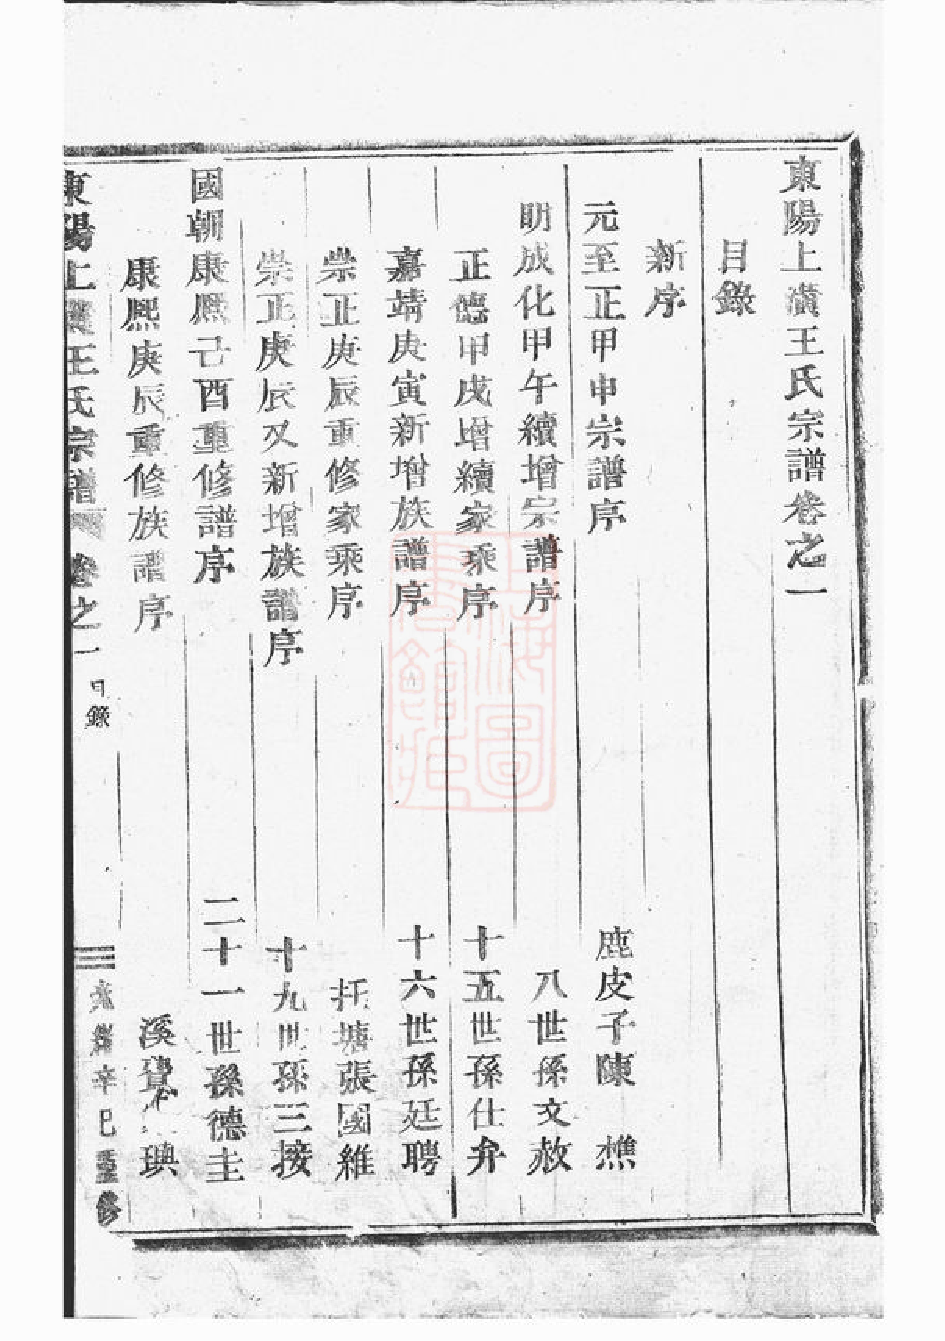 東陽上潢王氏宗譜卷之一
目錄
新序
元至正甲申宗譜序 鹿皮子陳樵
明成化甲午續增宗譜序 八世孫文赦
正德甲戌增續家乘序 十五世孫仕弁
嘉靖庚寅新增族譜序 十六世孫廷聘
崇正庚辰重修家乘序 托塘張國維
崇正庚辰又新增族譜序 十九世孫三接
國朝康熙己酉重修譜序 二十一世孫德圭
康熙庚辰重修族譜序 溪
東陽上潢王氏宗譜 卷之一 目錄 光緒辛巳重修